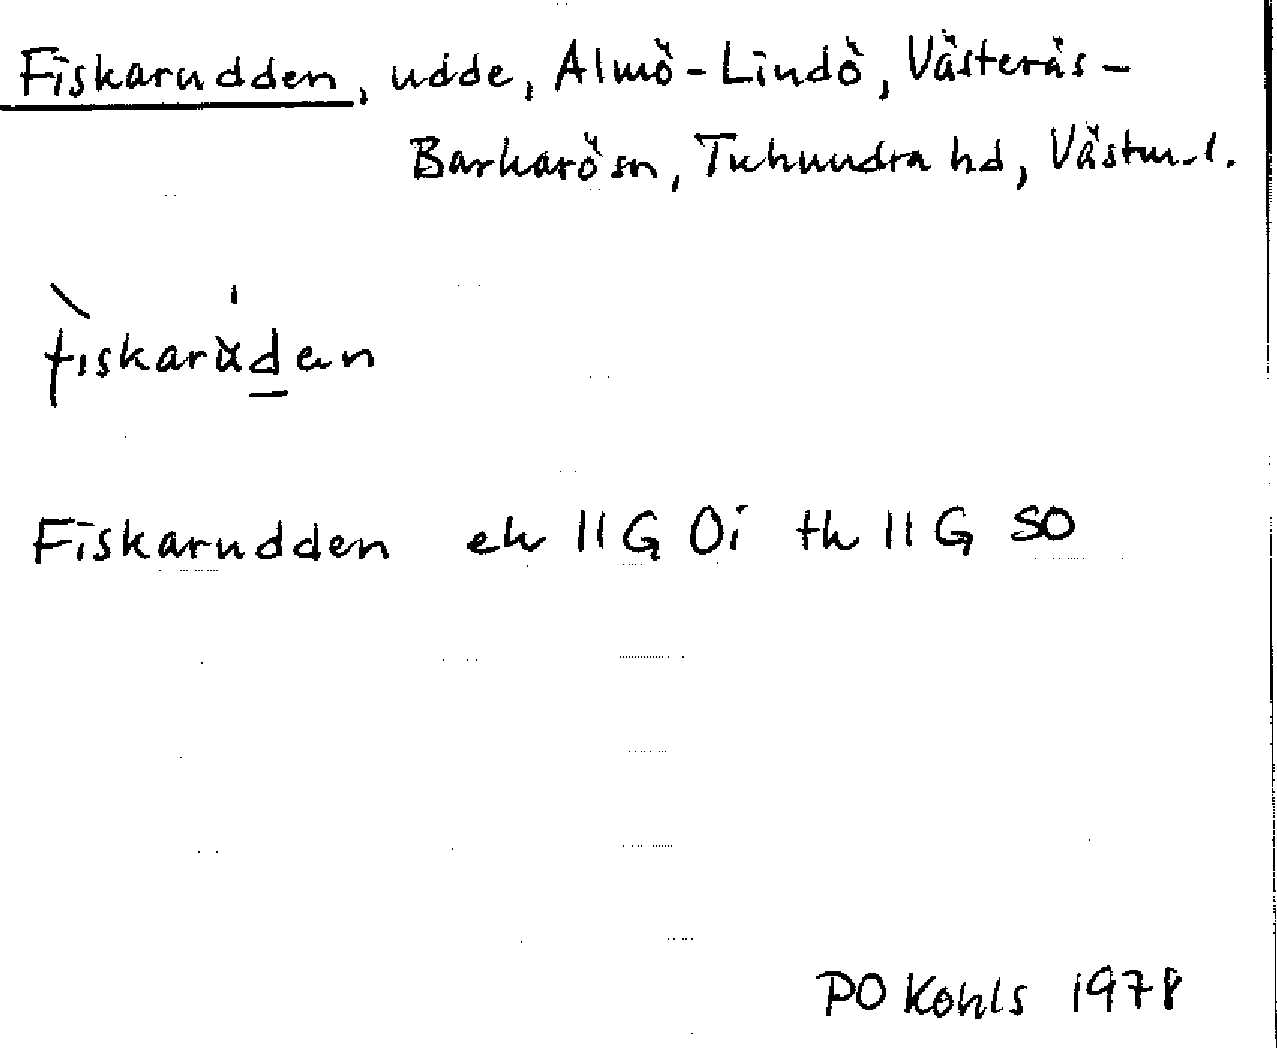 Fiskarudden, udde, Almö-Lindö, Västerås-
Barkarö sn, Tuhundra hd, Västm. l.
fiskarùden
Fiskarudden ek 11 G 0i tk 11 G SO
PO Kohls 1978